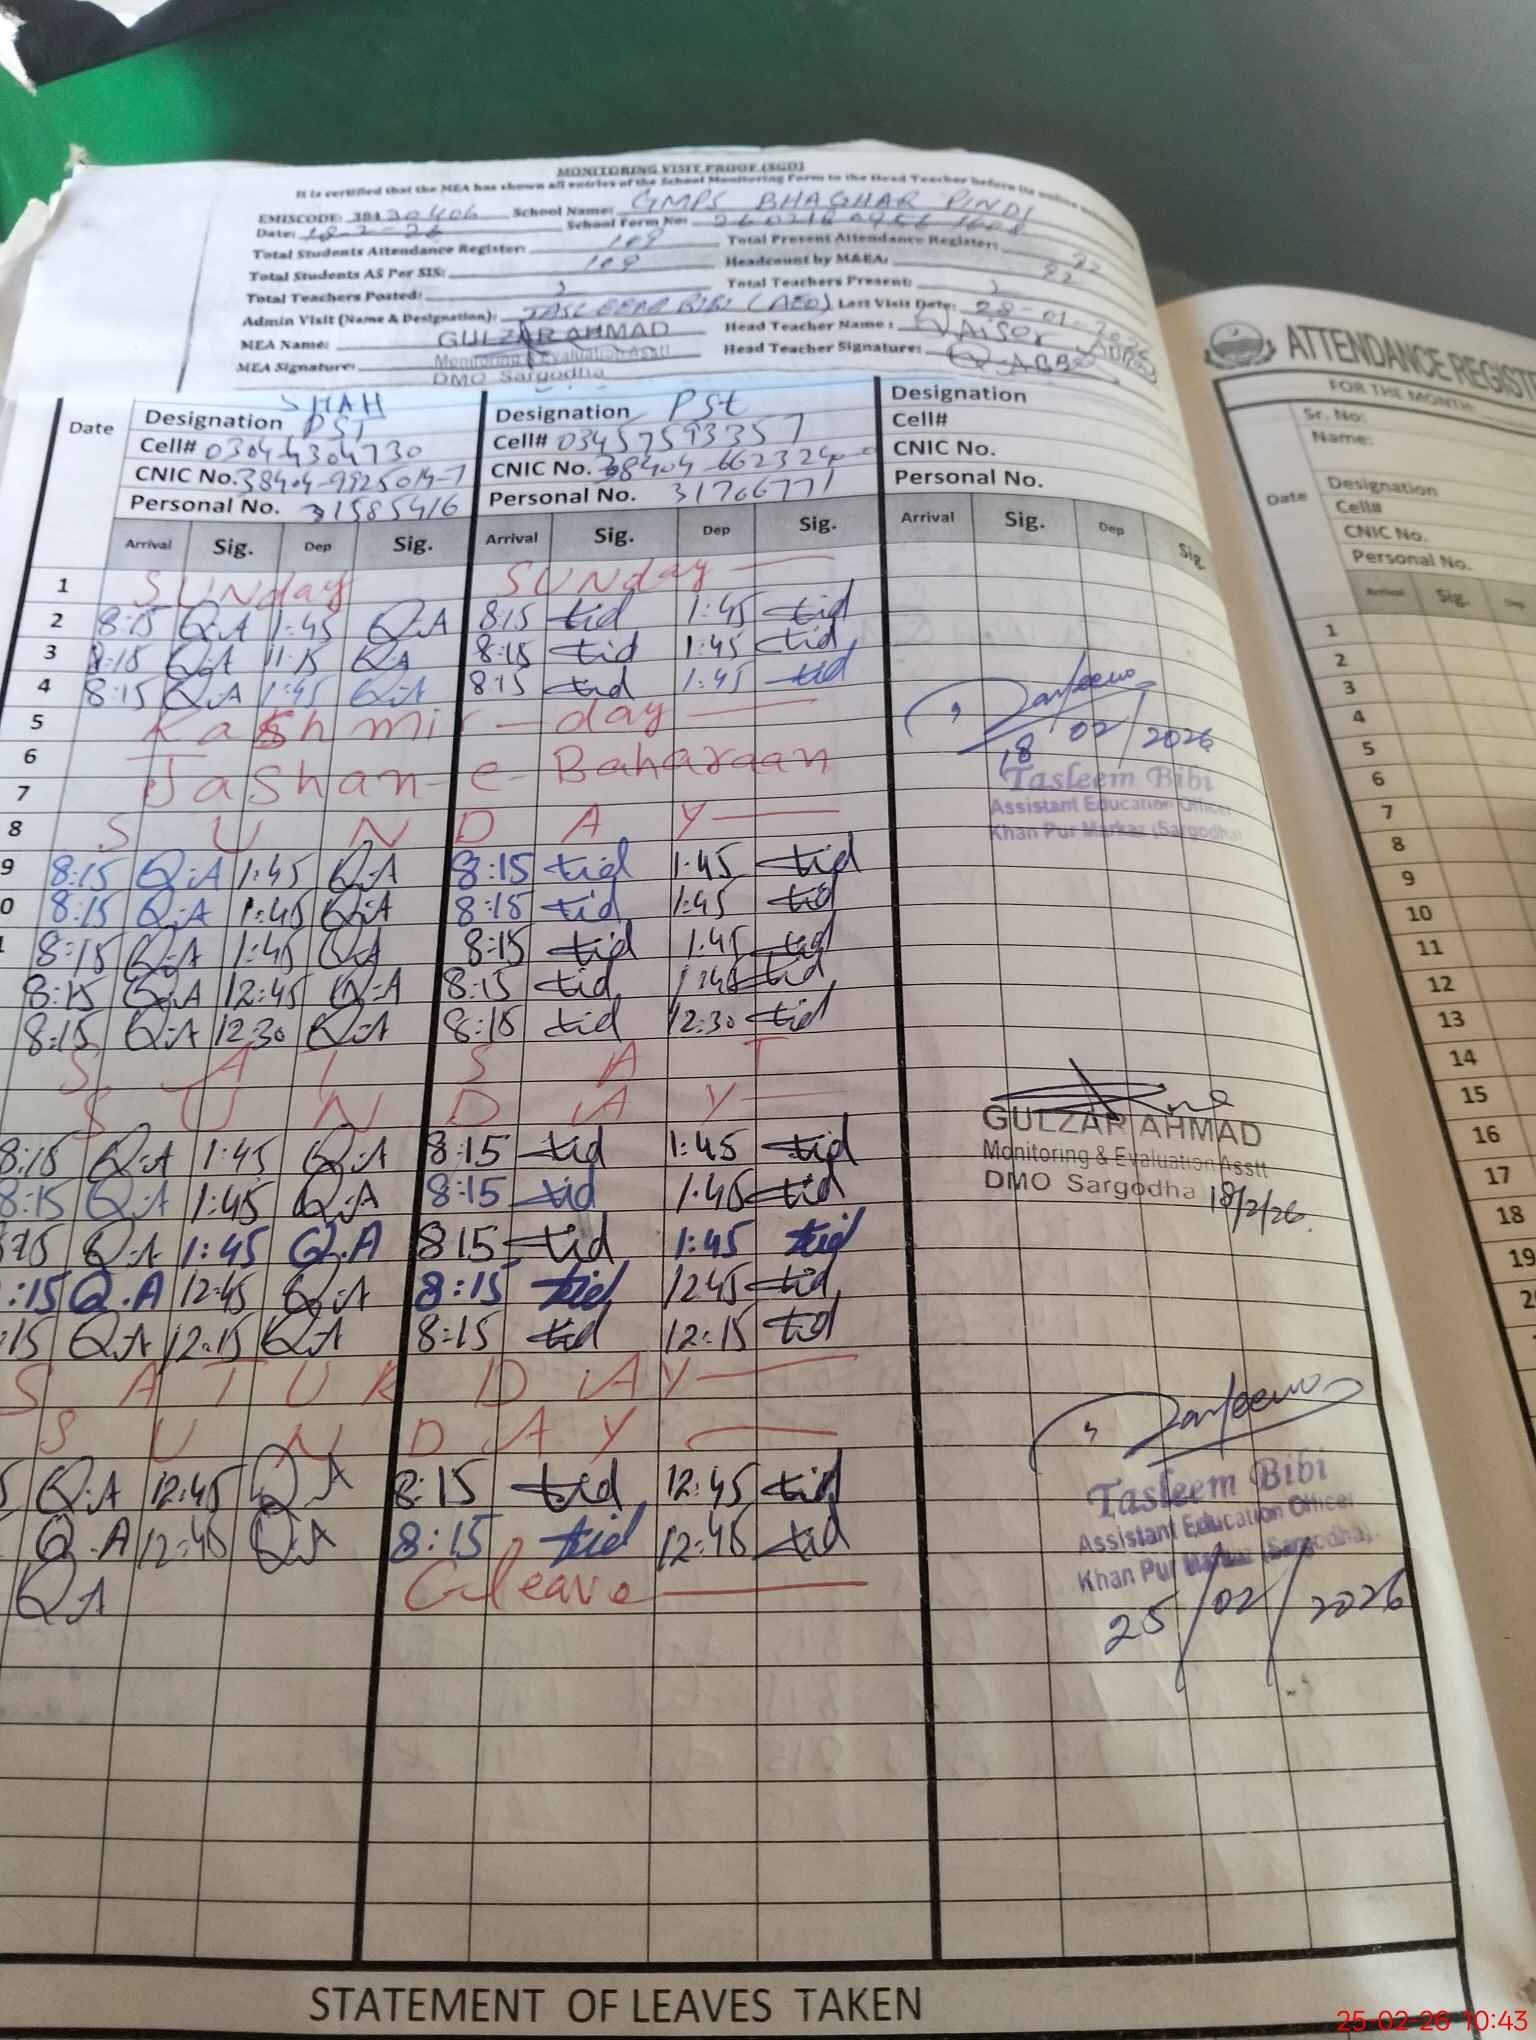 MONITORING VISIT PROOF (SGD)
It is certified that the MEA has shown all entries of the School Monitoring Form to the Head Teacher before its online
EMISCODE: 38430406 School Name: GMPS BHAGHAR PINDI
Date: 18-2-26 School Form No:
Total Students Attendance Register: 109 Total Present Attendance Register: 92
Total Students AS Per SIS: 109 Headcount by M&EA: 92
Total Teachers Posted: Total Teachers Present:
Admin Visit (Name & Designation): TASLEEM BIBI (AEO) Last Visit Date: 28-01-2026
MEA Name: GULZAR AHMAD Head Teacher Name:
MEA Signature: Monitoring & Evaluation Asstt Head Teacher Signature:
DMO Sargodha
SHAH
Date Designation PST Designation PSt Designation
Cell# 03044304730 Cell# 03457593357 Cell#
CNIC No. 38404-9925014-7 CNIC No. CNIC No.
Personal No. 31585416 Personal No. 31766771 Personal No.
Arrival Sig. Dep Sig. Arrival Sig. Dep Sig. Arrival Sig. Dep Sig.
1 SUNday SUNday
2 8:15 Q.A 1:45 Q.A 8:15 tid 1:45 tid
3 8:15 Q.A 11:15 QA 8:15 tid 1:45 tid
4 8:15 Q.A 1:45 Q.A 8:15 tid 1:45 tid
5 Kashmir-day
6
7 Jashan-e-Baharaan
8 S U N D A Y
9 8:15 Q.A 1:45 Q.A 8:15 tid 1:45 tid
0 8:15 Q.A 1:45 Q.A 8:15 tid 1:45 tid
8:15 Q.A 1:45 Q.A 8:15 tid 1:45 tid
8:15 Q.A 12:45 Q.A 8:15 tid 1:45 tid
8:15 Q.A 12:30 Q.A 8:15 tid 12:30 tid
S A T S A T
S U N D A Y
8:15 Q.A 1:45 Q.A 8:15 tid 1:45 tid
8:15 Q.A 1:45 Q.A 8:15 tid 1:45 tid
:15 Q.A 1:45 Q.A 8:15 tid 1:45 tid
:15 Q.A 12:45 Q.A 8:15 tid 12:45 tid
:15 Q.A 12:15 Q.A 8:15 tid 12:15 tid
S A T U R D A Y
S U N D A Y
5 Q.A 12:45 Q.A 8:15 tid 12:45 tid
Q.A 12:45 Q.A 8:15 tid 12:45 tid
Q.A C leave
Tasleem
18/02/2026
Tasleem Bibi
Assistant Education Officer
Khan Pur Markaz (Sargodha)
GULZAR AHMAD
Monitoring & Evaluation Asstt
DMO Sargodha 18/2/26
Tasleem
Tasleem Bibi
Assistant Education Officer
Khan Pur Markaz (Sargodha)
25/02/2026
STATEMENT OF LEAVES TAKEN
ATTENDANCE REGIST
FOR THE MONTH:
Sr. No:
Name:
Date Designation
Cell#
CNIC No.
Personal No.
Arrival Sig. Dep
1
2
3
4
5
6
7
8
9
10
11
12
13
14
15
16
17
18
19
25-02-26 10:43